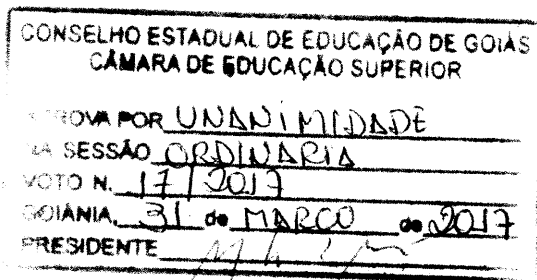 CONSELHO ESTADUAL DE EDUCAÇÃO DE GOIÁS
CÂMARA DE EDUCAÇÃO SUPERIOR
POR UNANIMIDADE
SESSÃO ORDINARIA
VOTO N. 17/2017
GOIÂNIA, 31 de MARCO de 2017
PRESIDENTE